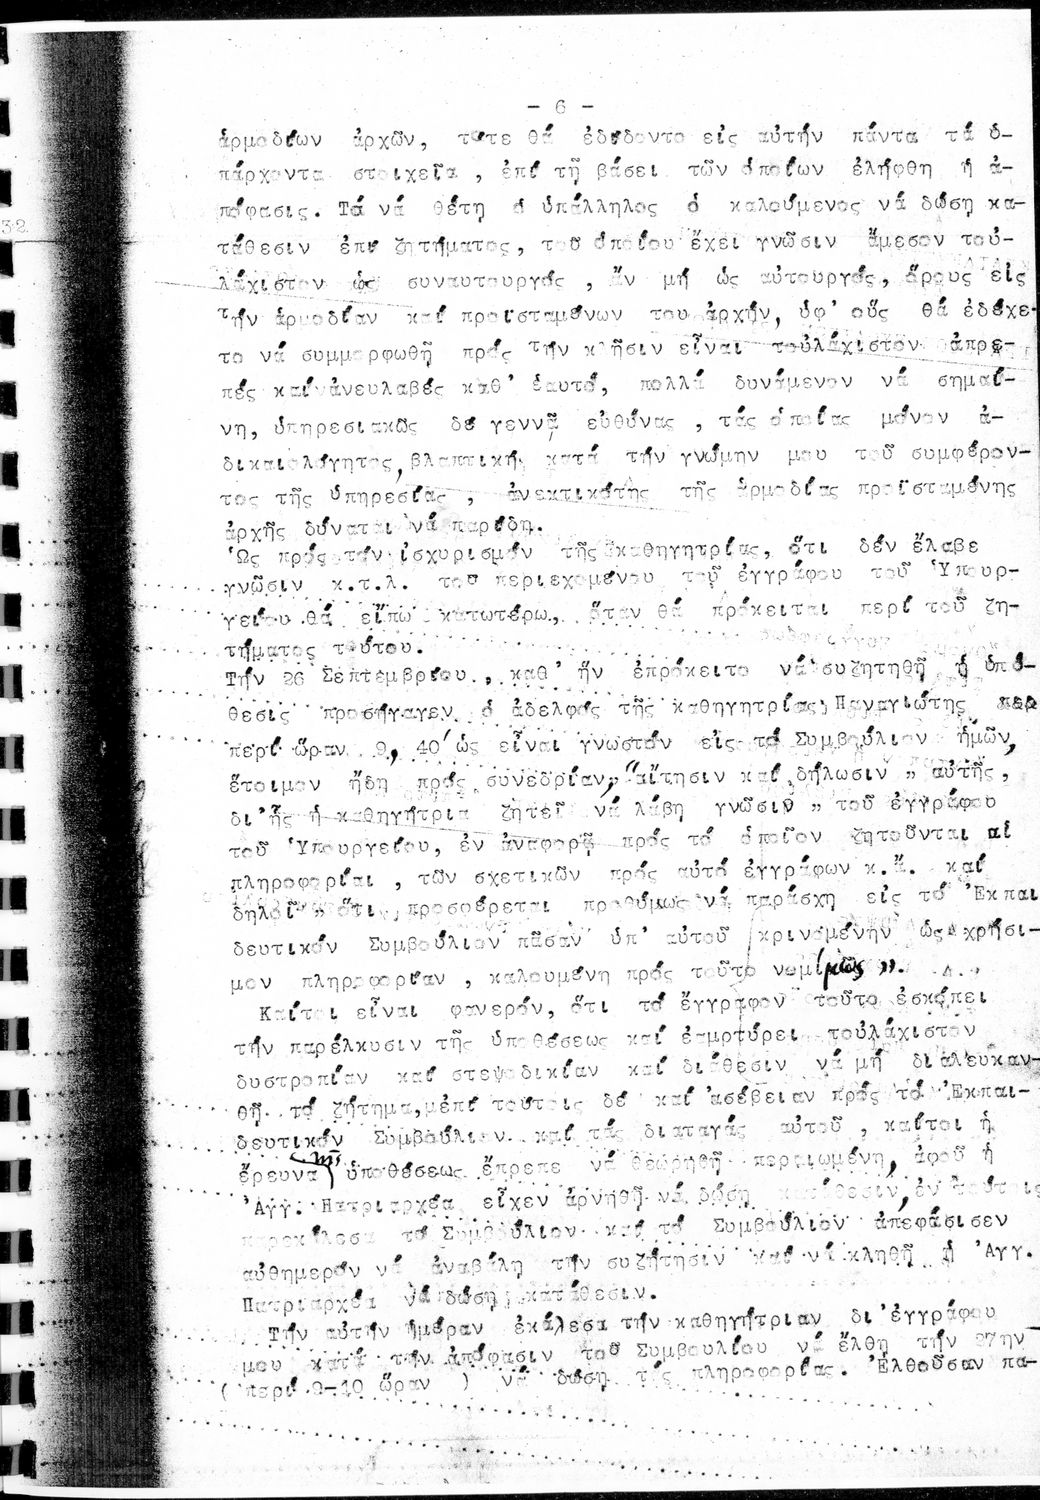 - 6 -
ἁρμοδίων ἀρχῶν, τότε θά ἐδίδοντο εἰς αὐτήν πάντα τά ὑ-
πάρχοντα στοιχεῖα , ἐπί τῇ βάσει τῶν ὁποίων ἐλήφθη ἡ ἀ-
πόφασις. Τό νά θέτῃ ὁ ὑπάλληλος ὁ καλούμενος νά δώσῃ κα-
32
τάθεσιν ἐπί ζητήματος, τοῦ ὁποίου ἔχει γνῶσιν ἄμεσον τοὐ-
λάχιστον ὡς συναυτουργός , ἄν μή ὡς αὐτουργός, ὅρους εἰς
τήν ἁρμοδίαν καί προϊσταμένων του ἀρχήν, ὑφ' οὕς θά ἐδέχε-
το νά συμμορφωθῇ πρός τήν κλῆσιν εἶναι τοὐλάχιστον ἀπρε-
πές καί ἀνευλαβές καθ' ἑαυτό, πολλά δυνάμενον νά σημαί-
νῃ, ὑπηρεσιακῶς δέ γεννᾷ εὐθύνας , τάς ὁποίας μόνον ἀ-
δικαιολόγητος, βλαπτική κατά τήν γνώμην μου τοῦ συμφέρον-
τος τῆς ὑπηρεσίας , ἀνεκτικότης τῆς ἁρμοδίας προϊσταμένης
ἀρχῆς δύναται νά παρίδῃ.
Ὡς πρός τόν ἰσχυρισμόν τῆς καθηγητρίας, ὅτι δέν ἔλαβε
γνῶσιν κ.τ.λ. τοῦ περιεχομένου τοῦ ἐγγράφου τοῦ Ὑπουρ-
γείου θά εἴπω κατωτέρω, ὅταν θά πρόκειται περί τοῦ ζη-
τήματος τούτου.
Τήν 26 Σεπτεμβρίου , καθ' ἥν ἐπρόκειτο νά συζητηθῇ ἡ ὑπό-
θεσις προσήγαγεν ὁ ἀδελφός τῆς καθηγητρίας Παναγιώτης
περί ὥραν 9, 40' ὡς εἶναι γνωστόν εἰς τό Συμβούλιον ἡμῶν,
ἕτοιμον ἤδη πρός συνεδρίαν, "αἴτησιν καί δήλωσιν " αὐτῆς,
δι' ἧς ἡ καθηγήτρια ζητεῖ νά λάβῃ γνῶσιν " τοῦ ἐγγράφου
τοῦ Ὑπουργείου, ἐν ἀναφορᾷ πρός τό ὁποῖον ζητοῦνται αἱ
πληροφορίαι , τῶν σχετικῶν πρός αὐτό ἐγγράφων κ.ἄ. καί
δηλοῖ " ὅτι προσφέρεται προθύμως νά παράσχῃ εἰς τό Ἐκπαι
δευτικόν Συμβούλιον πᾶσαν ὑπ' αὐτοῦ κρινομένην ὡς χρήσι-
μον πληροφορίαν , καλουμένη πρός τοῦτο νομίμως ".
Καίτοι εἶναι φανερόν, ὅτι τό ἔγγραφον τοῦτο ἐσκόπει
τήν παρέλκυσιν τῆς ὑποθέσεως καί ἐαμρτύρει τοὐλάχιστον
δυστροπίαν καί στεψοδικίαν καί διάθεσιν νά μή διαλευκαν-
θῇ τό ζήτημα, ἐπί τούτοις δέ καί ἀσέβειαν πρός τό Ἐκπαι-
δευτικόν Συμβούλιον καί τάς διαταγάς αὐτοῦ , καίτοι ἡ
ἔρευνα τῆς ὑποθέσεως ἔπρεπε νά θεωρηθῇ περαιωμένη, ἀφοῦ ἡ
Ἀγγ. Πατριαρχέα εἶχεν ἀρνηθῇ νά δώσῃ κατάθεσιν, ἐν τούτοις
παρεκάλεσα τό Συμβούλιον καί τό Συμβούλιον ἀπεφάσισεν
αὐθημερόν νά ἀναβάλῃ τήν συζήτησιν καί νά κληθῇ ἡ Ἀγγ.
Πατριαρχέα νά δώσῃ κατάθεσιν.
Τήν αὐτήν ἡμέραν ἐκάλεσα τήν καθηγήτριαν δι' ἐγγράφου
μου κατά τήν ἀπόφασιν τοῦ Συμβουλίου νά ἔλθῃ τήν 27ην
( περί 9-10 ὥραν ) νά δώσῃ τάς πληροφορίας. Ἐλθοῦσαν πα-